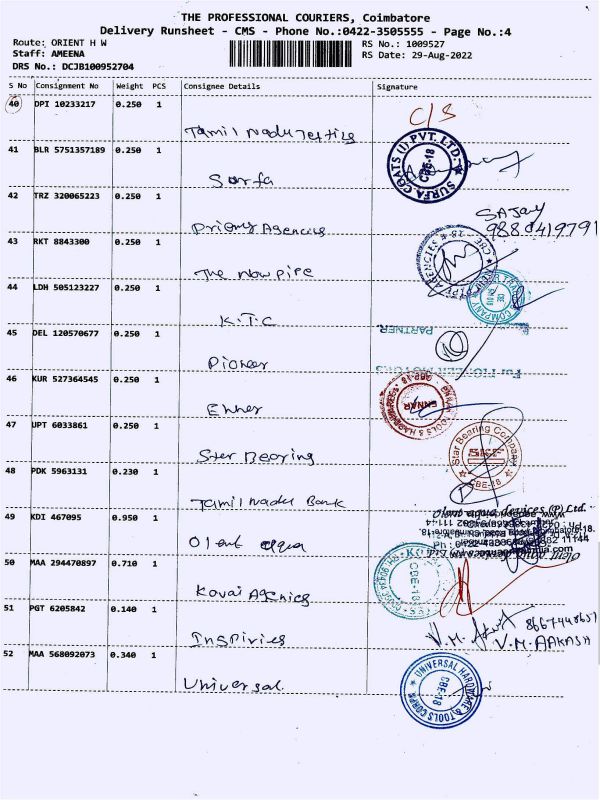 THE PROFESSIONAL COURIERS, Coimbatore
Delivery Runsheet - CMS - Phone No.:0422-3505555 - Page No.:4
Route: ORIENT H W
RS No.: 1009527
Staff: AMEENA
RS Date: 29-Aug-2022
DRS No.: DCJB100952704
S No Consignment No Weight PCS Consignee Details Signature
40 DPI 10233217 0.250 1
C/S
Tamil nadu
41 BLR 5751357189 0.250 1
SURFA COATS (I) PVT. LTD. CBE-18
Surfa
42 TRZ 320065223 0.250 1
SAJay
Agencies
43 RKT 8843300 0.250 1
AGENCIES CBE
The now pipe
44 LDH 505123227 0.250 1
COMPANY
K.T.C
45 DEL 120570677 0.250 1
PARTNER
Pioneer
For PIONEER MOTORS
46 KUR 527364545 0.250 1
ENNAR TOOLS & HARDWARES ENNAR
Enner
47 UPT 6033861 0.250 1
Star Bearing Company SKF CBE-18
Ster Beoring
48 PDK 5963131 0.230 1
Tamil nadu Bank
49 KDI 467095 0.950 1
devices (P) Ltd.
50 MAA 294470897 0.710 1
CBE-18
Kovai Agencies
51 PGT 6205842 0.140 1
8667448651
V.M. AAKASH
52 MAA 568092073 0.340 1
UNIVERSAL HARDWARE & TOOLS CORPS CBE-18
Universal